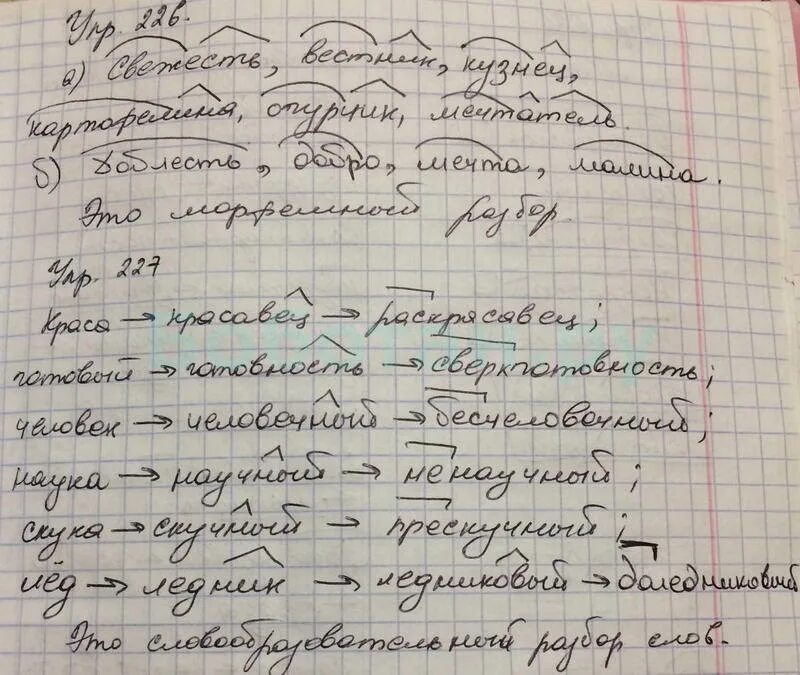 Упр. 226.
а) Свежесть, вестник, кузнец,
картофелина, огурчик, мечтатель.
б) Доблесть, добро, мечта, малина.
Это морфемный разбор.
Упр. 227
Краса → красавец → раскрасавец;
готовый → готовность → сверхготовность;
человек → человечный → бесчеловечный;
наука → научный → ненаучный;
скука → скучный → прескучный;
лёд → ледник → ледниковый → доледниковый
Это словообразовательный разбор слов.